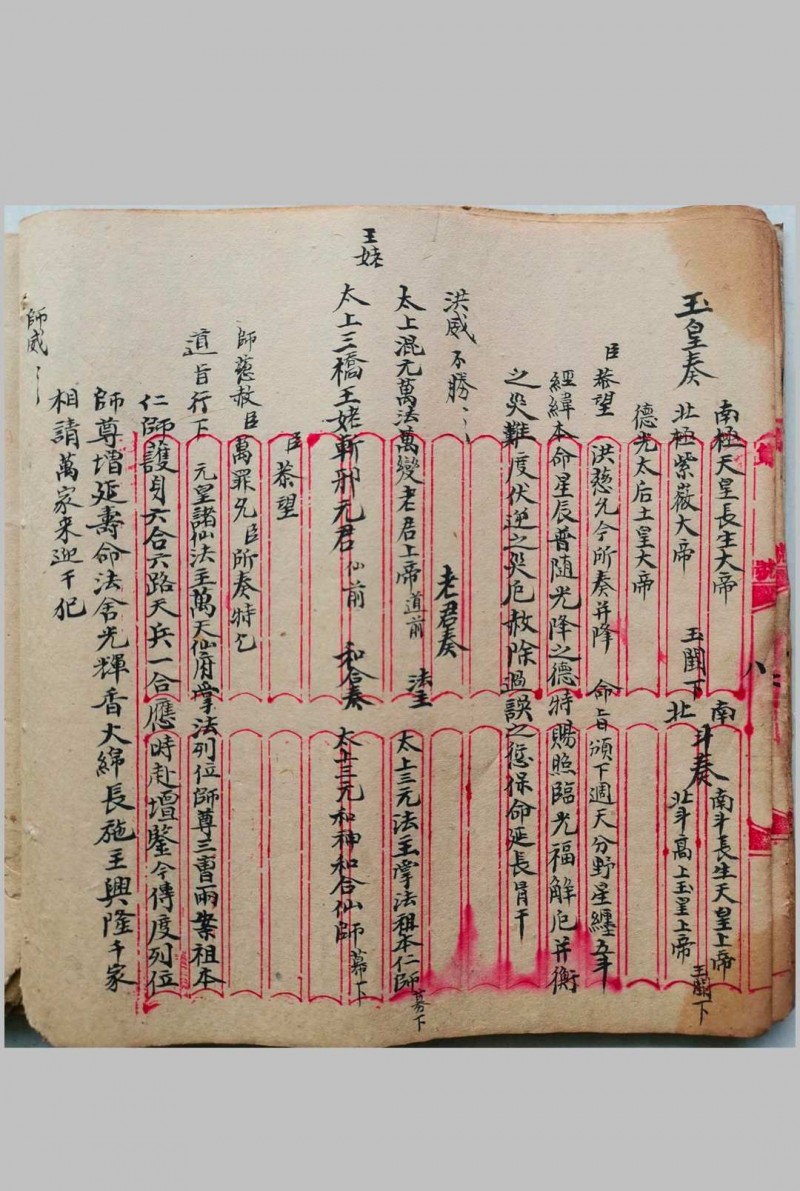 玉皇奏
南極天皇長生大帝
北極紫薇大帝 玉闕下
德光太后土皇大帝
南北斗奏
南斗長生天皇上帝
北斗高上玉皇上帝 玉闕下
臣恭望 洪慈允今所奏并降 命旨頒下週天分野星纏五斗
經緯本命星辰普随光降之德特賜照臨光福解厄并衡
之災難度伏逆之災厄赦除過誤之愆保命延長冐干
洪威不勝〻
老君奏
太上混元萬法萬變老君上帝道前
法主
太上三元法主掌法祖本仁師幕下
王姥
太上三橋王姥斬邪元君仙前
和合奏
太上三元和神和合仙師幕下
臣恭望
師慈赦臣萬罪允臣所奏特乞
道旨行下 元皇諸仙法主萬天仙府掌法列位師尊三曹兩案祖本
仁師護身六合六路天兵一合應時赴壇鑒今傳度列位
師尊增延壽命法舍光輝香火綿長施主興隆千家
相請萬家来迎干犯
師威〻
八